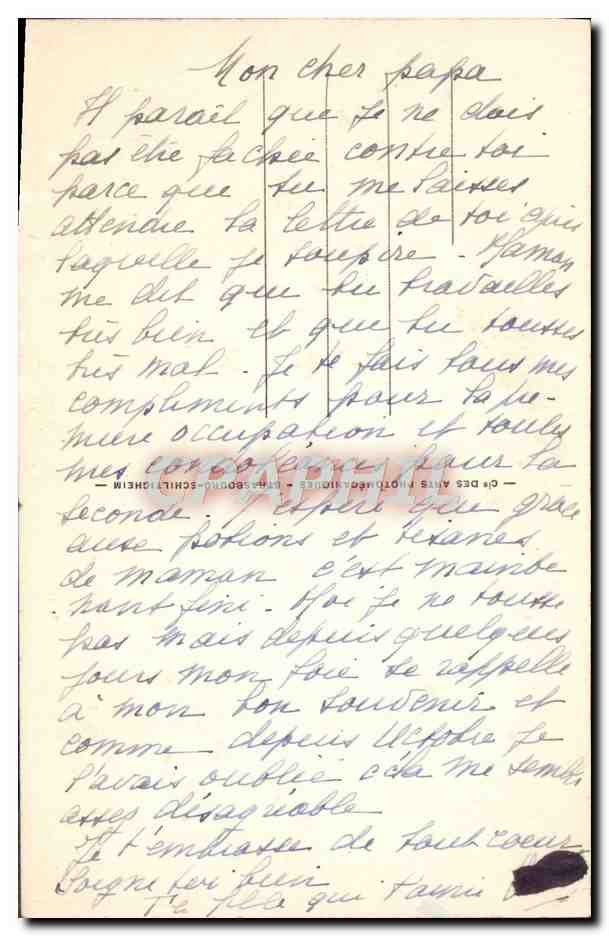 Mon cher papa
Il parait que je ne dois
pas être fachée contre toi
parce que tu me laisses
attendre la lettre de toi après
laquelle je soupire - Maman
me dit que tu travailles
très bien et que tu tousses
très mal. Je te fais tous mes
compliments pour la pre-
mière occupation et toutes
mes condoléances pour la
CIe DES ARTS PHOTOMÉCANIQUES - STRASBOURG-SCHILTIGHEIM
seconde. J'espère que grace
aux potions et tisanes
de maman c'est mainte
nant fini - Moi je ne tousse
pas mais depuis quelques
jours mon foie se rappelle
à mon bon souvenir et
comme depuis Octobre je
l'avais oublié cela me semble
assez désagréable
Je t'embrasse de tout coeur
Soigne toi bien
Ta fille qui t'aime